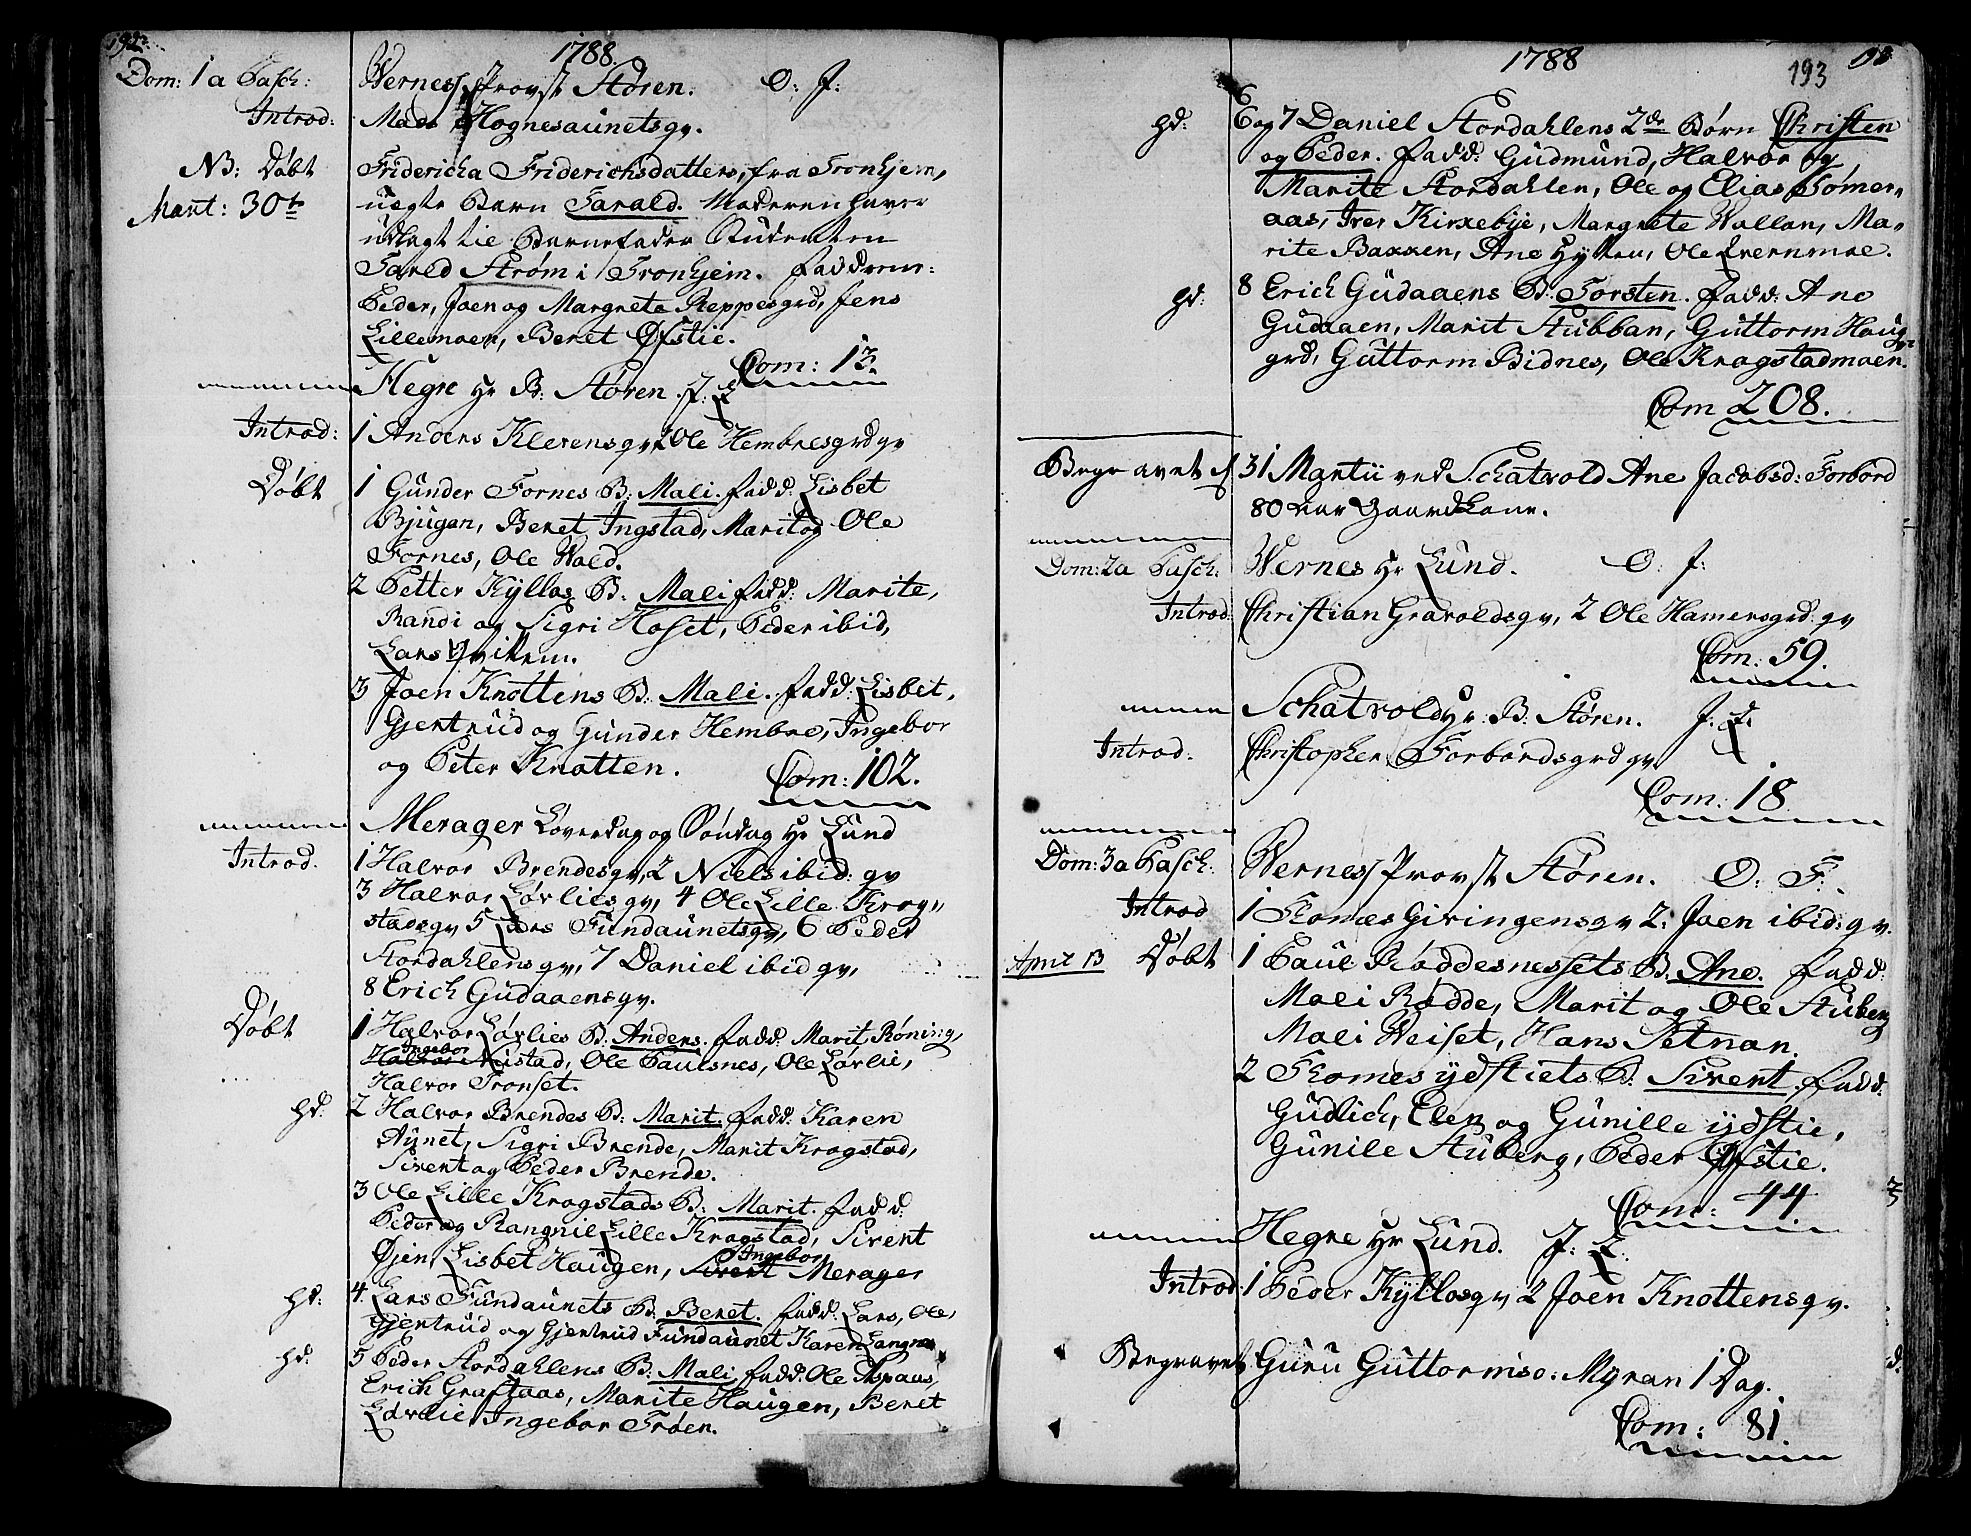 192.
1788.
Dom: 1 a Pasch: Wernes Provst Støren. O: F:
Introd: Mads Hognesaunets gv.
NB: Døbt Fridericha Friderichsdatters, fra Tronhjem,
Mart: 30te uegte Barn Tarald. Moderen haver
udlagt til Barnefader Studenten
Tareld Strøm i Tronhjem. Faddere:
Peder, Joen og Margrete Reppesgrd, Jens
Lillemoen, Beret Øfstie.
Com: 13.
Hegre Hr B: Støren. J: L
Introd: 1 Anders Klevens gv, 2 Ole Hembresgrd gv
Døbt 1 Gunder Fornes B: Mali. Fadd: Lisbet
Bjugan, Beret Ingstad, Marit og Ole
Fornes, Ole Wold.
2 Petter Kyllos B: Mali Fadd: Marite,
Randi og Sigri Hoset, Peder ibid,
Lars Qviken.
3 Joen Knottens B: Mali. Fadd: Lisbet,
Gjertrud og Gunder Hembre, Ingebor
og Peter Knotten.
Com: 102.
Merager Løverdag og Søndag Hr Lund
Introd. 1 Halvor Brendes gv, 2 Niels ibid: gv
3 Halvor Lørlies gv, 4 Ole Lille Krog-
stads gv 5 Lars Fundaunets gv, 6 Peder
Stordahlens gv, 7 Daniel ibid gv,
8 Erich Gudaaens gv.
Døbt 1 Halvor Lørlies B: Anders. Fadd: Marit Røning,
Ingebor
Halvor Nistad, Ole Paulsnes, Ole Lørlie,
Halvor Tronset.
hd: 2 Halvor Brendes B: Marit. Fadd: Karen
Aunet, Sigri Brende, Marit Krogstad,
Sivert og Peder Brende.
3 Ole Lille Krogstads B: Marit. Fadd:
Peder og Rangnil Lille Krogstad, Sivert
Øjen, Lisbet Haugen, Sivert Ingebor Merager
hd: 4. Lars Fundaunets B: Beret. Fadd: Lars, Ole,
Gjertrud og Gjertrud Fundaunet Karen
hd: 5 Peder Stordahlens B: Mali, Fadd: Ole Aspaas,
Erich Graftaas, Marite Haugen, Beret
Lørlie, Ingebor Trøen.
1788
193
hd: 6 og 7 Daniel Stordahlens 2de Børn Christen
og Peder. Fadd: Gudmund, Halvor og
Marite Stordahlen, Ole og Elias Sømer-
aas, Iver Kirkebye, Margrete Wollan, Ma-
rite Bakken, Ane Hytten, Ole Qvernmoe.
hd: 8 Erich Gudaaens B: Torsten. Fadd: Ane
Gudaaen, Marit Stubban, Guttorm Haug-
grd, Guttorm Bidnes, Ole Krogstadmoen.
Com 208.
Begravet 31 Martii ved Schatvold Ane Jacobsd: Forbord
80 aar Gaardkone.
Dom: 2 a Pasch: Wernes Hr Lund. O: F:
Introd Christian Gravolds gv, 2 Ole Hamersgrd: gv
Com: 59.
Schatvold Hr: B: Støren. J. L.
Introd. Christopher Forbordsgrd gv
Com: 18
Dom: 3 a Pasch: Wernes Provst Støren. O: F:
Introd 1 Thomes Givingens gv 2: Joen ibid: gv.
April 13 Døbt 1 Paul Røddesnessets B. Ane. Fadd:
Mali Rødde, Marit og Ole Stuberg
Mali Weiset, Hans Setnan.
2 Thomes ydstiets B: Sivert. Fadd:
Gudlich, Elen og Gunille ydstie,
Gunile Stuberg, Peder Øfstie.
Com: 44
Hegre Hr Lund. J: L
Introd: 1 Peder Kyllos gv 2 Joen Knottens gv.
Begravet Guru Guttormsd: Myran 1 Dag.
Com: 81.